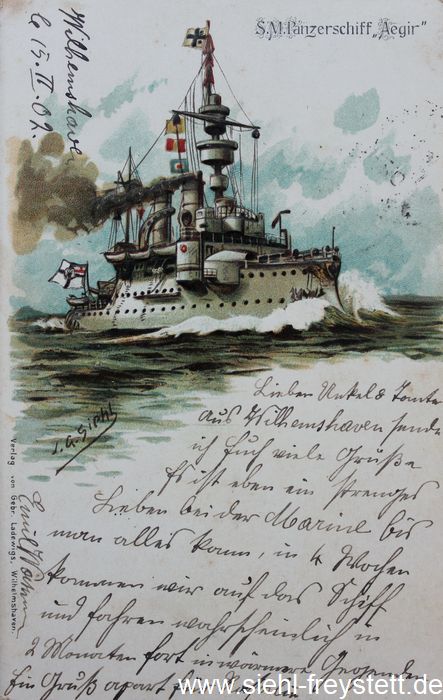 S.M.Panzerschiff „Aegir“
Wilhemshave
15.II.02
J.G.Siehl
Lieben Onkel & Tante
Aus Wilhemshaven sende
ich Euch viele Grüße
Es ist eben ein strenges
Lieben bei der Marine bis
man alles kann, in 4 Wochen
kommen wir auf das Schiff
und fahren wahrscheinlich in
2 Monaten fort in wärmere Gegenden
Ein Gruß apart
Emil
Verlag von Gebr. Ladewigs, Wilhelmshaven.
www.siehl-freystett.de